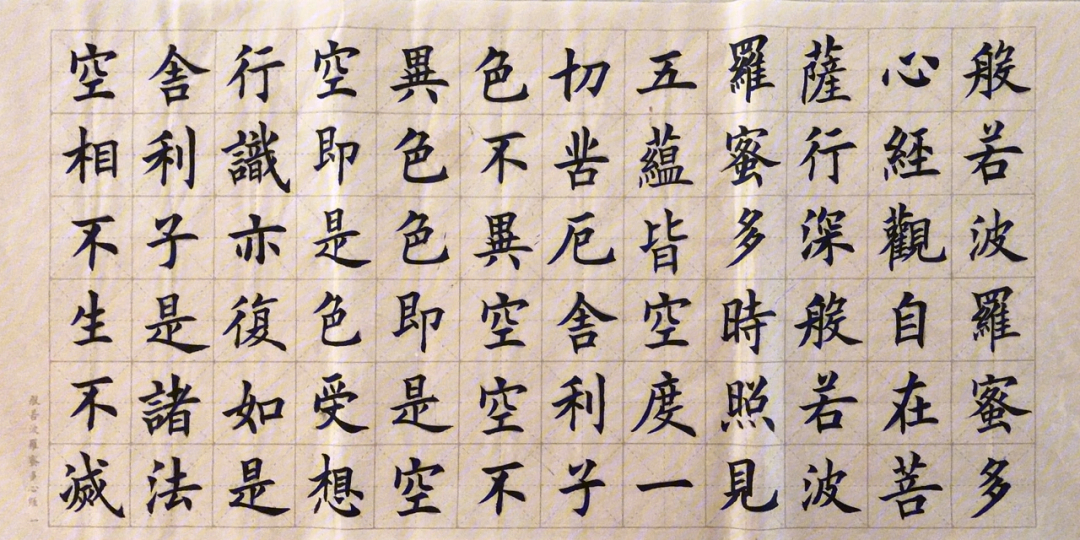 般若波羅蜜多
心經觀自在菩
薩行深般若波
羅蜜多時照見
五蘊皆空度一
切苦厄舍利子
色不異空空不
異色色即是空
空即是色受想
行識亦復如是
舍利子是諸法
空相不生不滅
般若波羅蜜多心經 一